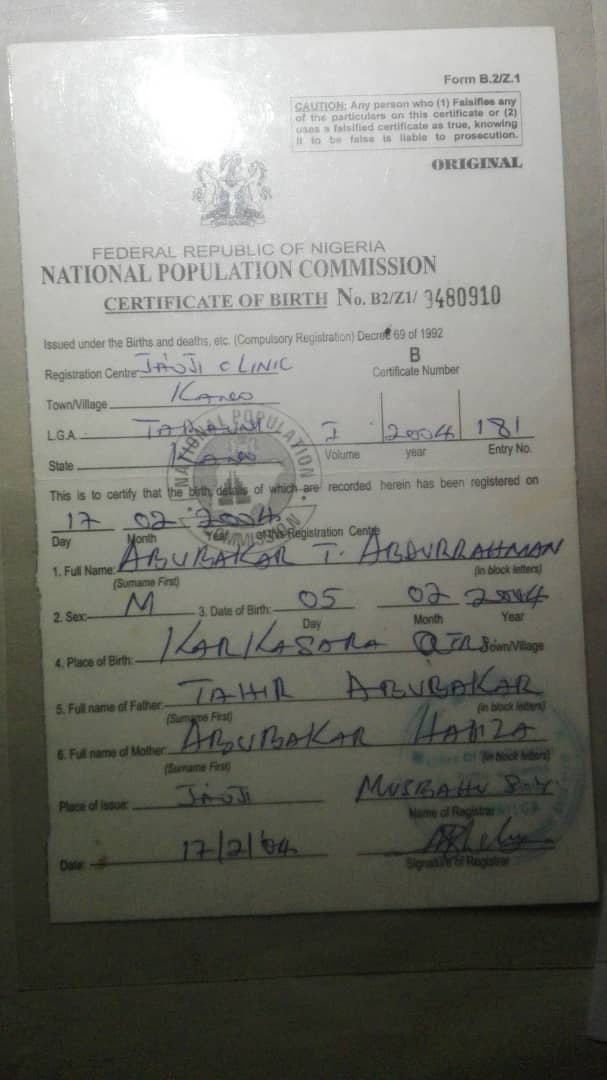 Form B.2/Z.1
CAUTION: Any person who (1) Falsifies any
of the particulars on this certificate or (2)
uses a falsified certificate as true, knowing
it to be false is liable to prosecution.
ORIGINAL
FEDERAL REPUBLIC OF NIGERIA
NATIONAL POPULATION COMMISSION
CERTIFICATE OF BIRTH No. B2/Z1/ 9480910
Issued under the Births and deaths, etc. (Compulsory Registration) Decree 69 of 1992
Registration Centre JAOJI CLINIC B
Certificate Number
Town/Village KANO
L.G.A. TARAUNI I 2004 181
State KANO Volume year Entry No.
NATIONAL POPULATION COMMISSION
This is to certify that the birth, details of which are recorded herein has been registered on
17 02 2004
Day Month Year at this Registration Centre
1. Full Name: ABUBAKAR T. ABDURRAHMAN
(Surname First) (in block letters)
2. Sex: M 3. Date of Birth: 05 02 2004
Day Month Year
4. Place of Birth: KARKASARA QTRS Town/Village
5. Full name of Father: TAHIR ABUBAKAR
(Surname First) (in block letters)
6. Full name of Mother: ABUBAKAR
(Surname First) (in block letters)
Place of Issue: JAOJI MUSBAHU S.Y.
Name of Registrar
Date: 17/2/04
Signature of Registrar